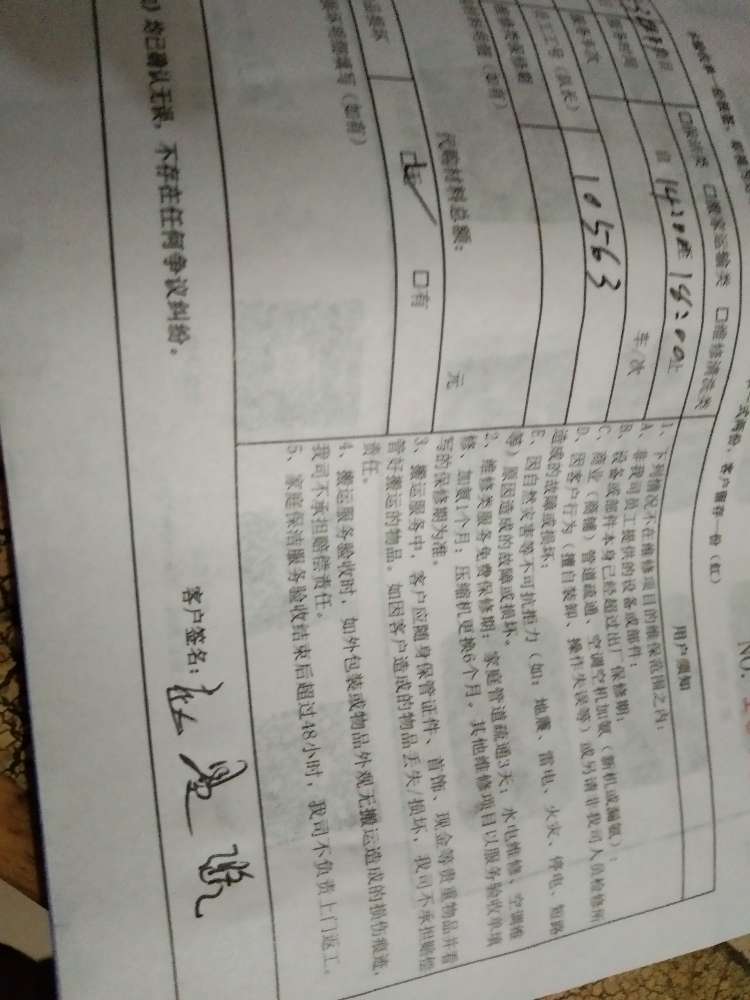 式两份，客户留存一份（红）
NO.
□保洁类 □搬家运输类 □维修清洗类
服务时间
自 14:00至 18:00止
服务车次
车/次
员工工号（队长）
10563
代购材料总额： 元
□无 ✓ □有
填写（如有）
均已确认无误，不存在任何争议纠纷。
用户须知
1、下列情况不在维修项目的维保范围之内：
A、非我司员工提供的设备或部件；
B、设备或部件本身已经超过出厂保修期；
C、商业（商铺）管道疏通、空调空机加氟（新机或漏氟）；
D、因客户行为（擅自装卸、操作失误等）或另请非我司人员检修所
造成的故障或损坏；
E、因自然灾害等不可抗拒力（如：地震、雷电、火灾、停电、短路
等）原因造成的故障或损坏。
2、维修类服务免费保修期：家庭管道疏通3天；水电维修、空调维
修、加氟1个月；压缩机更换6个月。其他维修项目以服务验收单填
写的保修期为准。
3、搬运服务中，客户应随身保管证件、首饰、现金等贵重物品并看
管好搬运的物品。如因客户造成的物品丢失/损坏，我司不承担赔偿
责任。
4、搬运服务验收时，如外包装或物品外观无搬运造成的损伤痕迹，
我司不承担赔偿责任。
5、家庭保洁服务验收结束后超过48小时，我司不负责上门返工。
客户签名：